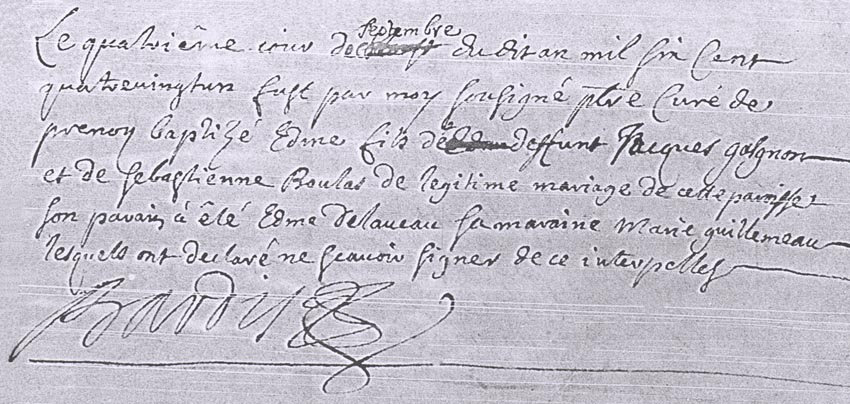 Septembre
Le quatriême iour de du dit an mil six Cent
quatrevingtun fust par moy sousigné ptre Curé de
prenoy baptizé Edme fils de deffunt Jacques gasgnon
et de sebastienne Roulas de legitime mariage de cette paroisse
son parain à êté Edme Delaveau sa maraine Marie guillemeau
lesquels ont declaré ne scavoir signer de ce interpellés